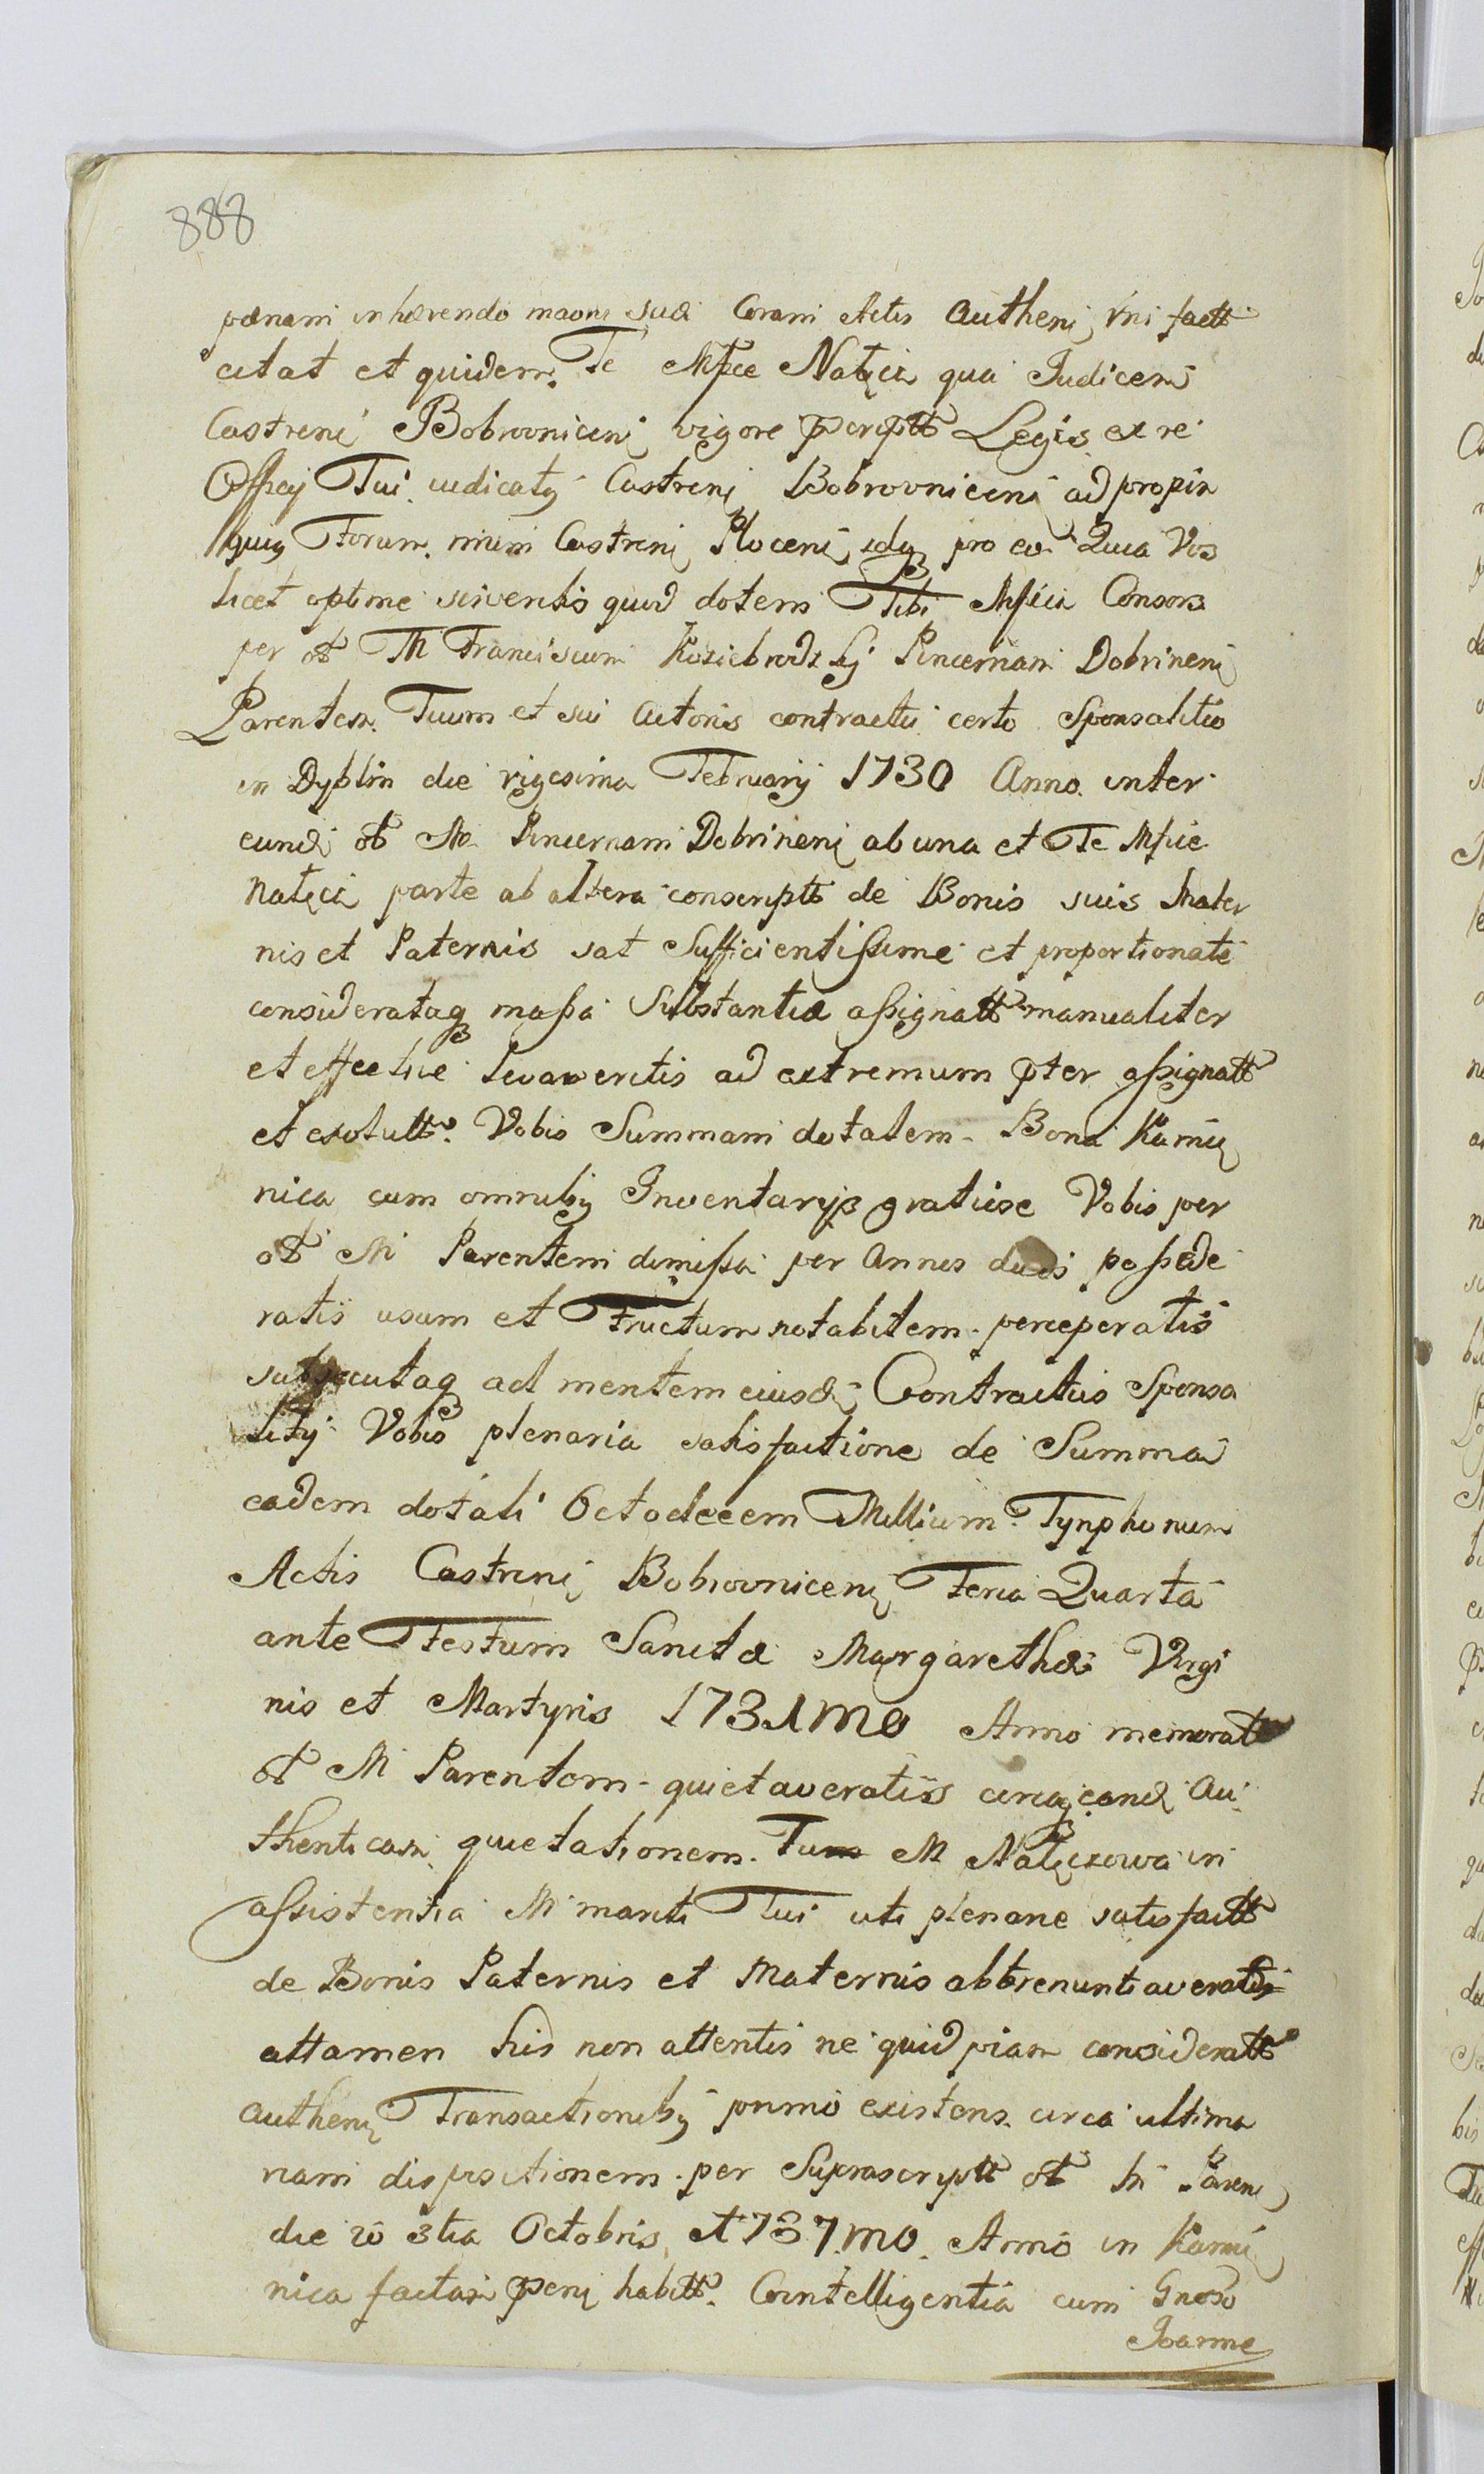 888
pœnam inhœrendo maoni suœ Coram Actis Autheni vni factt
citat et quidem. Te Mfice Natęcz qua Judicem
Castreni Bobrovniceni vigore pscriptt Legis ex re
Officij Tui iudicatg Castreni Bobrovniceni ad propin
quig Forum nimi Castreni Ploceni idq pro eo Quia Vos
licet optime sciventis quod dotem Tibi Mficæ Consors
per ol M Franciscum Koziebrodzkj Pincernam Dobrineni
Parentem Tuum et sui Actoris contractu certo Sponsalitio
in Dyblin die vigesima Februarij 1730 Anno inter
eund ol M Pincernam Dobrineni ab una et Te Mfice
Natęcz parte ab altera conscriptt de Bonis suis Mater
nis et Paternis sat Sufficientissime et proportionate
considerataq massa Substantiæ assignatt manualiter
et effective levaveritis ad extremum pter assignatt
et exolutt Vobis Summam dotalem Bona Kamię
nica cum omnibg Inventarijs gratiose Vobis per
ol M Parentem dimissa per Annos duos possede
ratis usum et Fructum notabilem perceperatis
subsecutaq ad mentem eiusd Contractus Sponsa
litij Vobis plenaria satisfactione de Summa
eadem dotali Octodecem Millium Tynphonum
Actis Castreni Bobrovniceni Feria Quarta
ante Festum Sanctæ Margarethæ Virgi
nis et Martyris 1731mo Anno memorat
ol M Parentem quietaveratis circaq eand Au
thenticam quietationem. Tum M Natęczowa in
assistentia M mariti Tui uti plenarie satisfactt
de Bonis Paternis et Maternis abbrenuntiaveratis
attamen his non attentis ne quidpiam consideratt
autheni Transactionibg primo existens circa ultima
riam dispositionem per Suprascriptt ol M Paren
die 3tia Octobris A 737.mo. Anno in Kamię
nica factam peni habitt. Cointelligentia cum Gnoso
Joanne